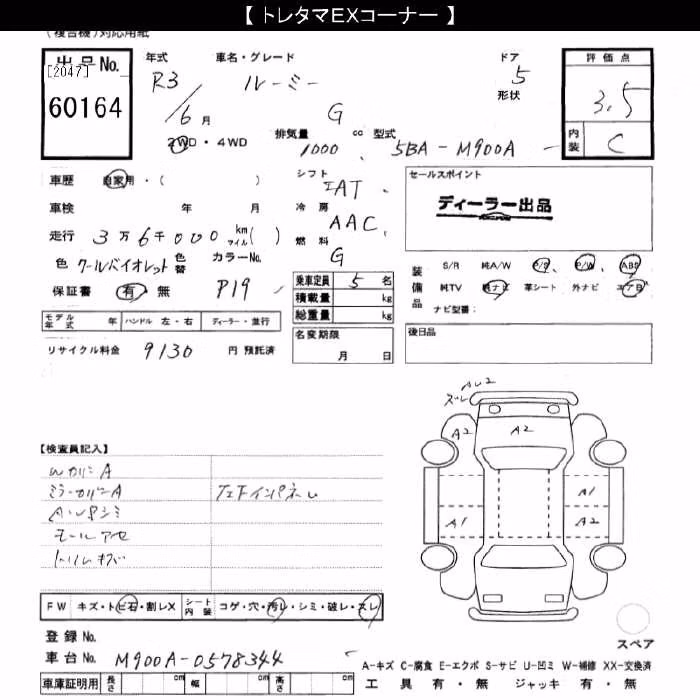 【 トレタマEXコーナー 】
（複合機）対応用紙
出品No.
[2047]
60164
年式 車名・グレード ドア
R3 ルーミー 5
形状
6 月 G
2WD・4WD 排気量 cc 型式
1000 5BA-M900A
評価点
3.5
内装 C
車歴 自家用・( ) シフト
IAT
車検 年 月 冷房 AAC
走行 3万6千000 km マイル ( ) 燃料 G
色 クールバイオレット 色替 カラーNo.
保証書 有 無 P19
セールスポイント
ディーラー出品
乗車定員 5 名
積載量 kg
総重量 kg
装備品 S/R 純A/W P/S P/W ABS
純TV 純ナビ 革シート 外ナビ エアB
ナビ型番:
モデル年式 年 ハンドル 左・右 ディーラー・並行
名変期限
月 日
後日品
リサイクル料金 9130 円 預託済
【検査員記入】
ズレ
A2 A2
A1
A1 A2
ミラーカバーA
モールアセ
トリムキズ
FW キズ・トビ石・割レX シート内装 コゲ・穴・汚レ・シミ・破レ・スレ
登録 No.
車台 No. M900A-0578344
スペア
車庫証明用 長さ cm 幅 cm 高さ cm
A-キズ C-腐食 E-エクボ S-サビ U-凹ミ W-補修 XX-交換済
工具 有・無 ジャッキ 有・無